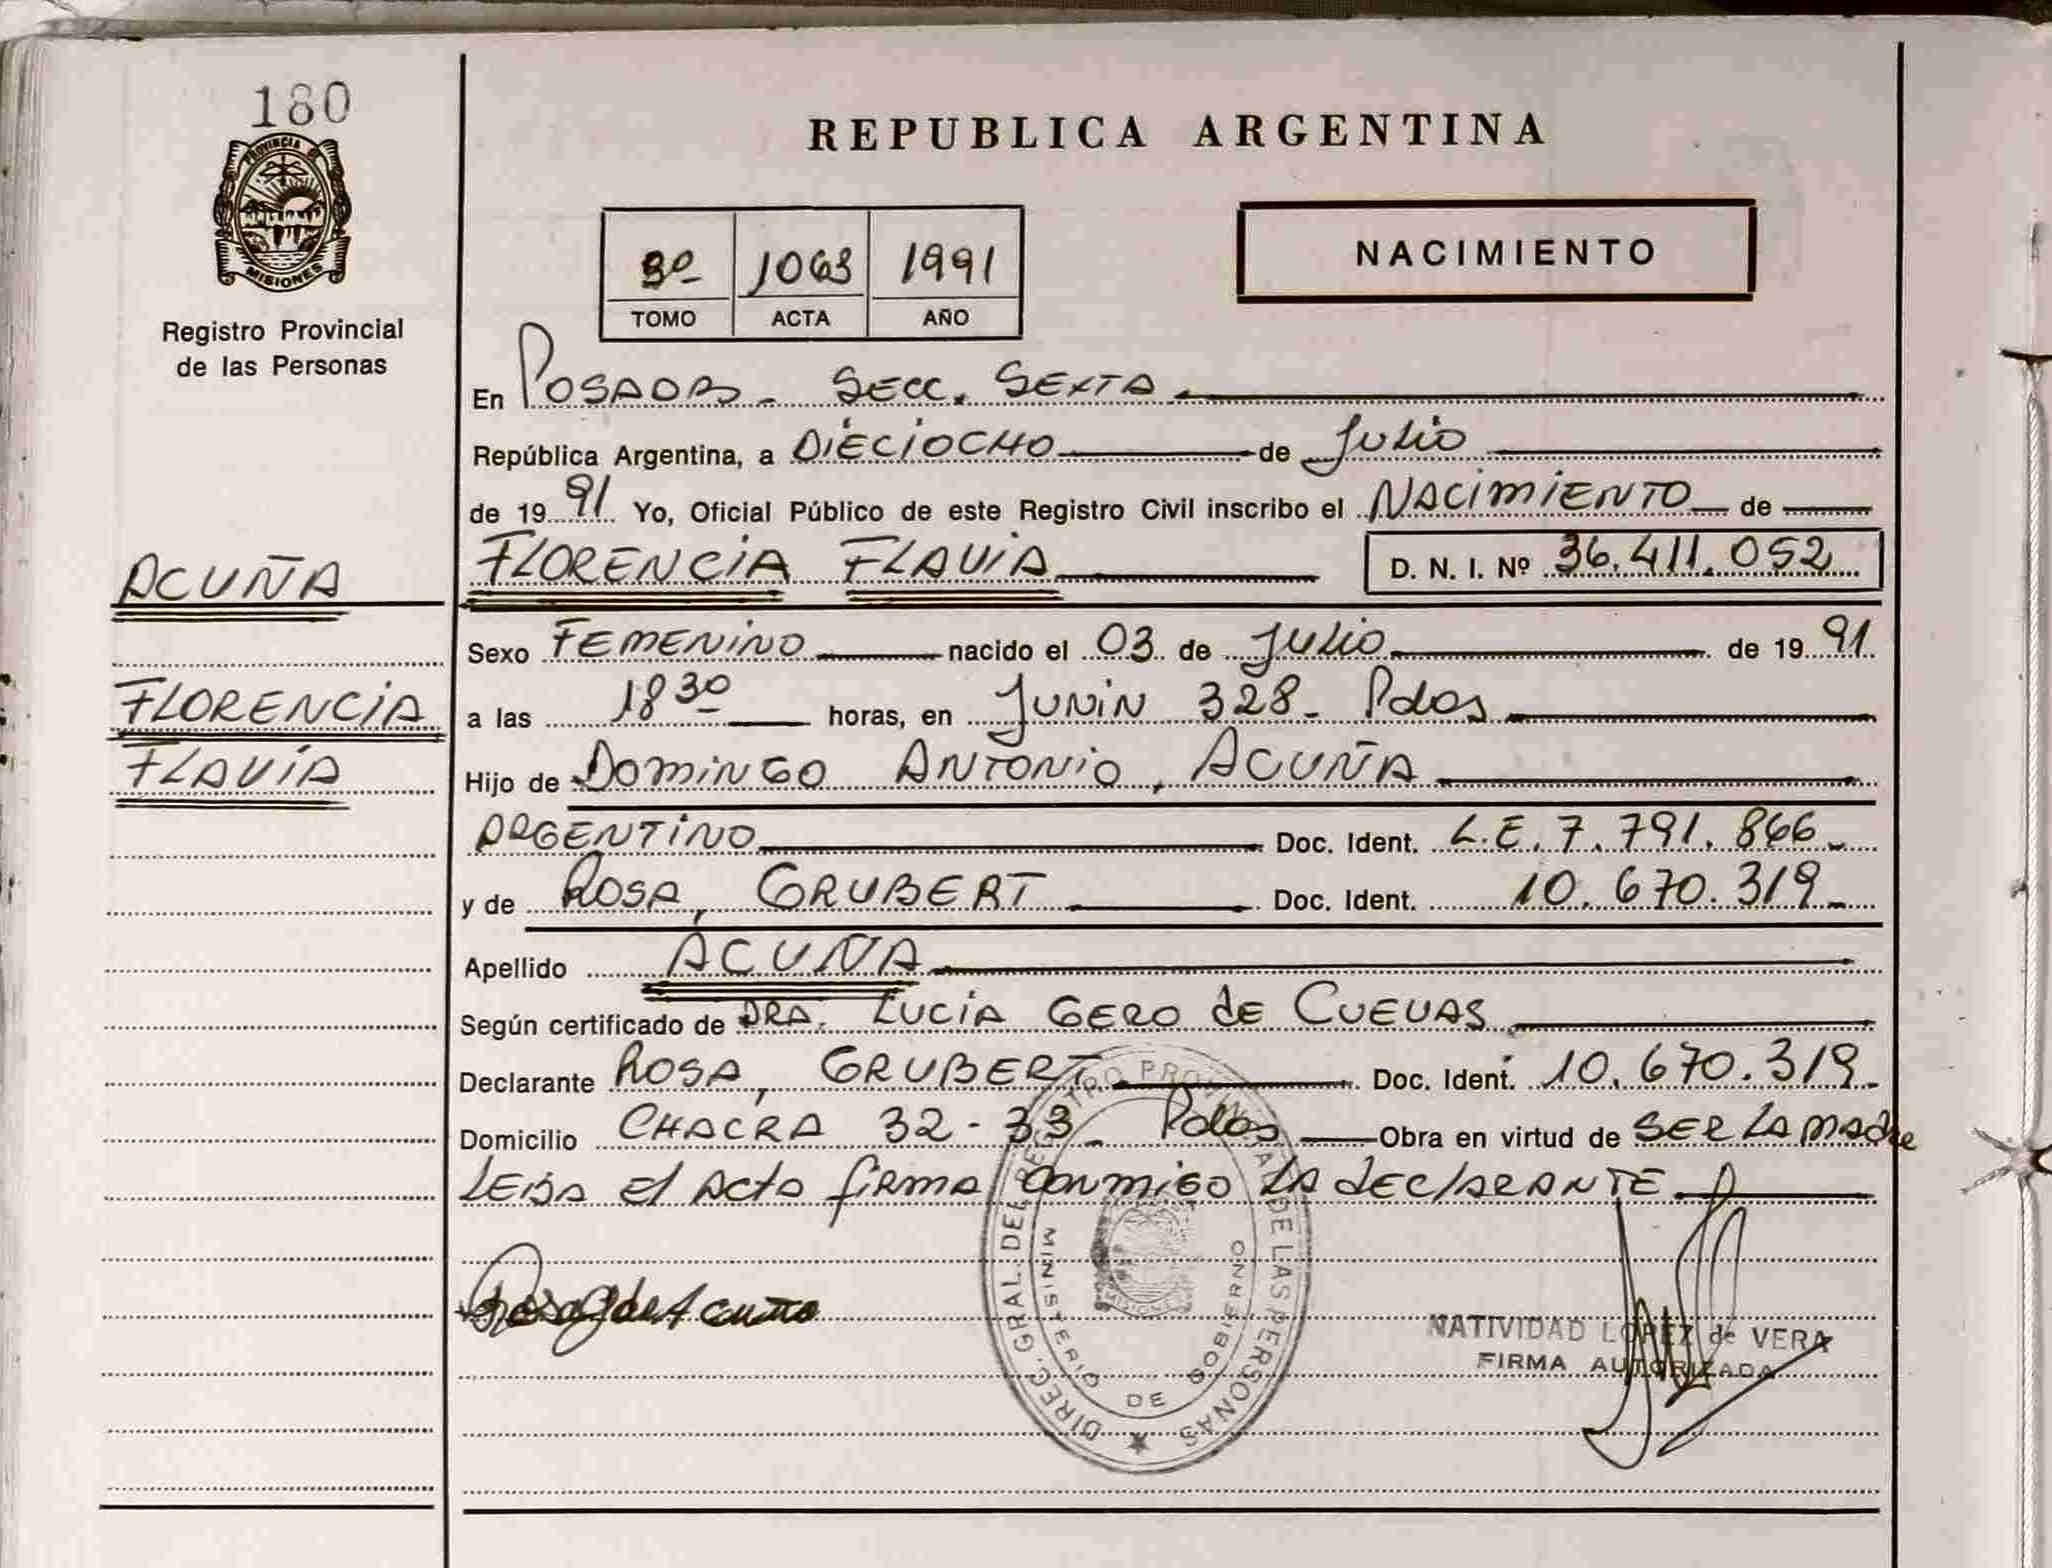 180
PROVINCIA DE
MISIONES
Registro Provincial
de las Personas
REPUBLICA ARGENTINA
3º 1063 1991
TOMO ACTA AÑO
NACIMIENTO
En POSADAS - SECC. SEXTA
República Argentina, a DIECIOCHO de Julio
de 19 91 Yo, Oficial Público de este Registro Civil inscribo el NACIMIENTO de
FLORENCIA FLAVIA D. N. I. Nº 36.411.052
ACUÑA
Sexo FEMENINO nacido el 03 de Julio de 19 91
FLORENCIA
a las 18 30 horas, en JUNIN 328 - Pdas
FLAVIA
Hijo de DOMINGO ANTONIO, ACUÑA
ARGENTINO Doc. Ident. L.E. 7.791.866.
y de ROSA, GRUBERT Doc. Ident. 10.670.319
Apellido ACUÑA
Según certificado de DRA. LUCIA GERO de CUEVAS
Declarante ROSA, GRUBERT Doc. Ident. 10.670.319
Domicilio CHACRA 32-33 Pdas Obra en virtud de SER LA MADRE
LEIDA El Acta firma conmigo LA declARANTE
Rosa G de Acuña
NATIVIDAD LOPEZ de VERA
FIRMA AUTORIZADA
DIREC. GRAL. DEL REGISTRO PROVINCIAL DE LAS PERSONAS
MINISTERIO DE GOBIERNO
MISIONES